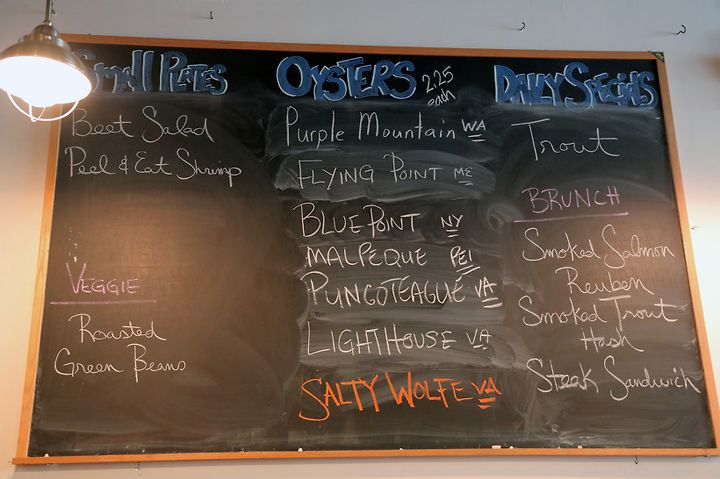 Small Plates
Beet Salad
Peel & Eat Shrimp
Veggie
Roasted
Green Beans
Oysters 2.25
each
Purple Mountain WA
Flying Point ME
Blue Point NY
Malpeque PEI
Pungoteague VA
Lighthouse VA
Salty Wolfe VA
Daily Specials
Trout
Brunch
Smoked Salmon
Reuben
Smoked Trout
Hash
Steak Sandwich